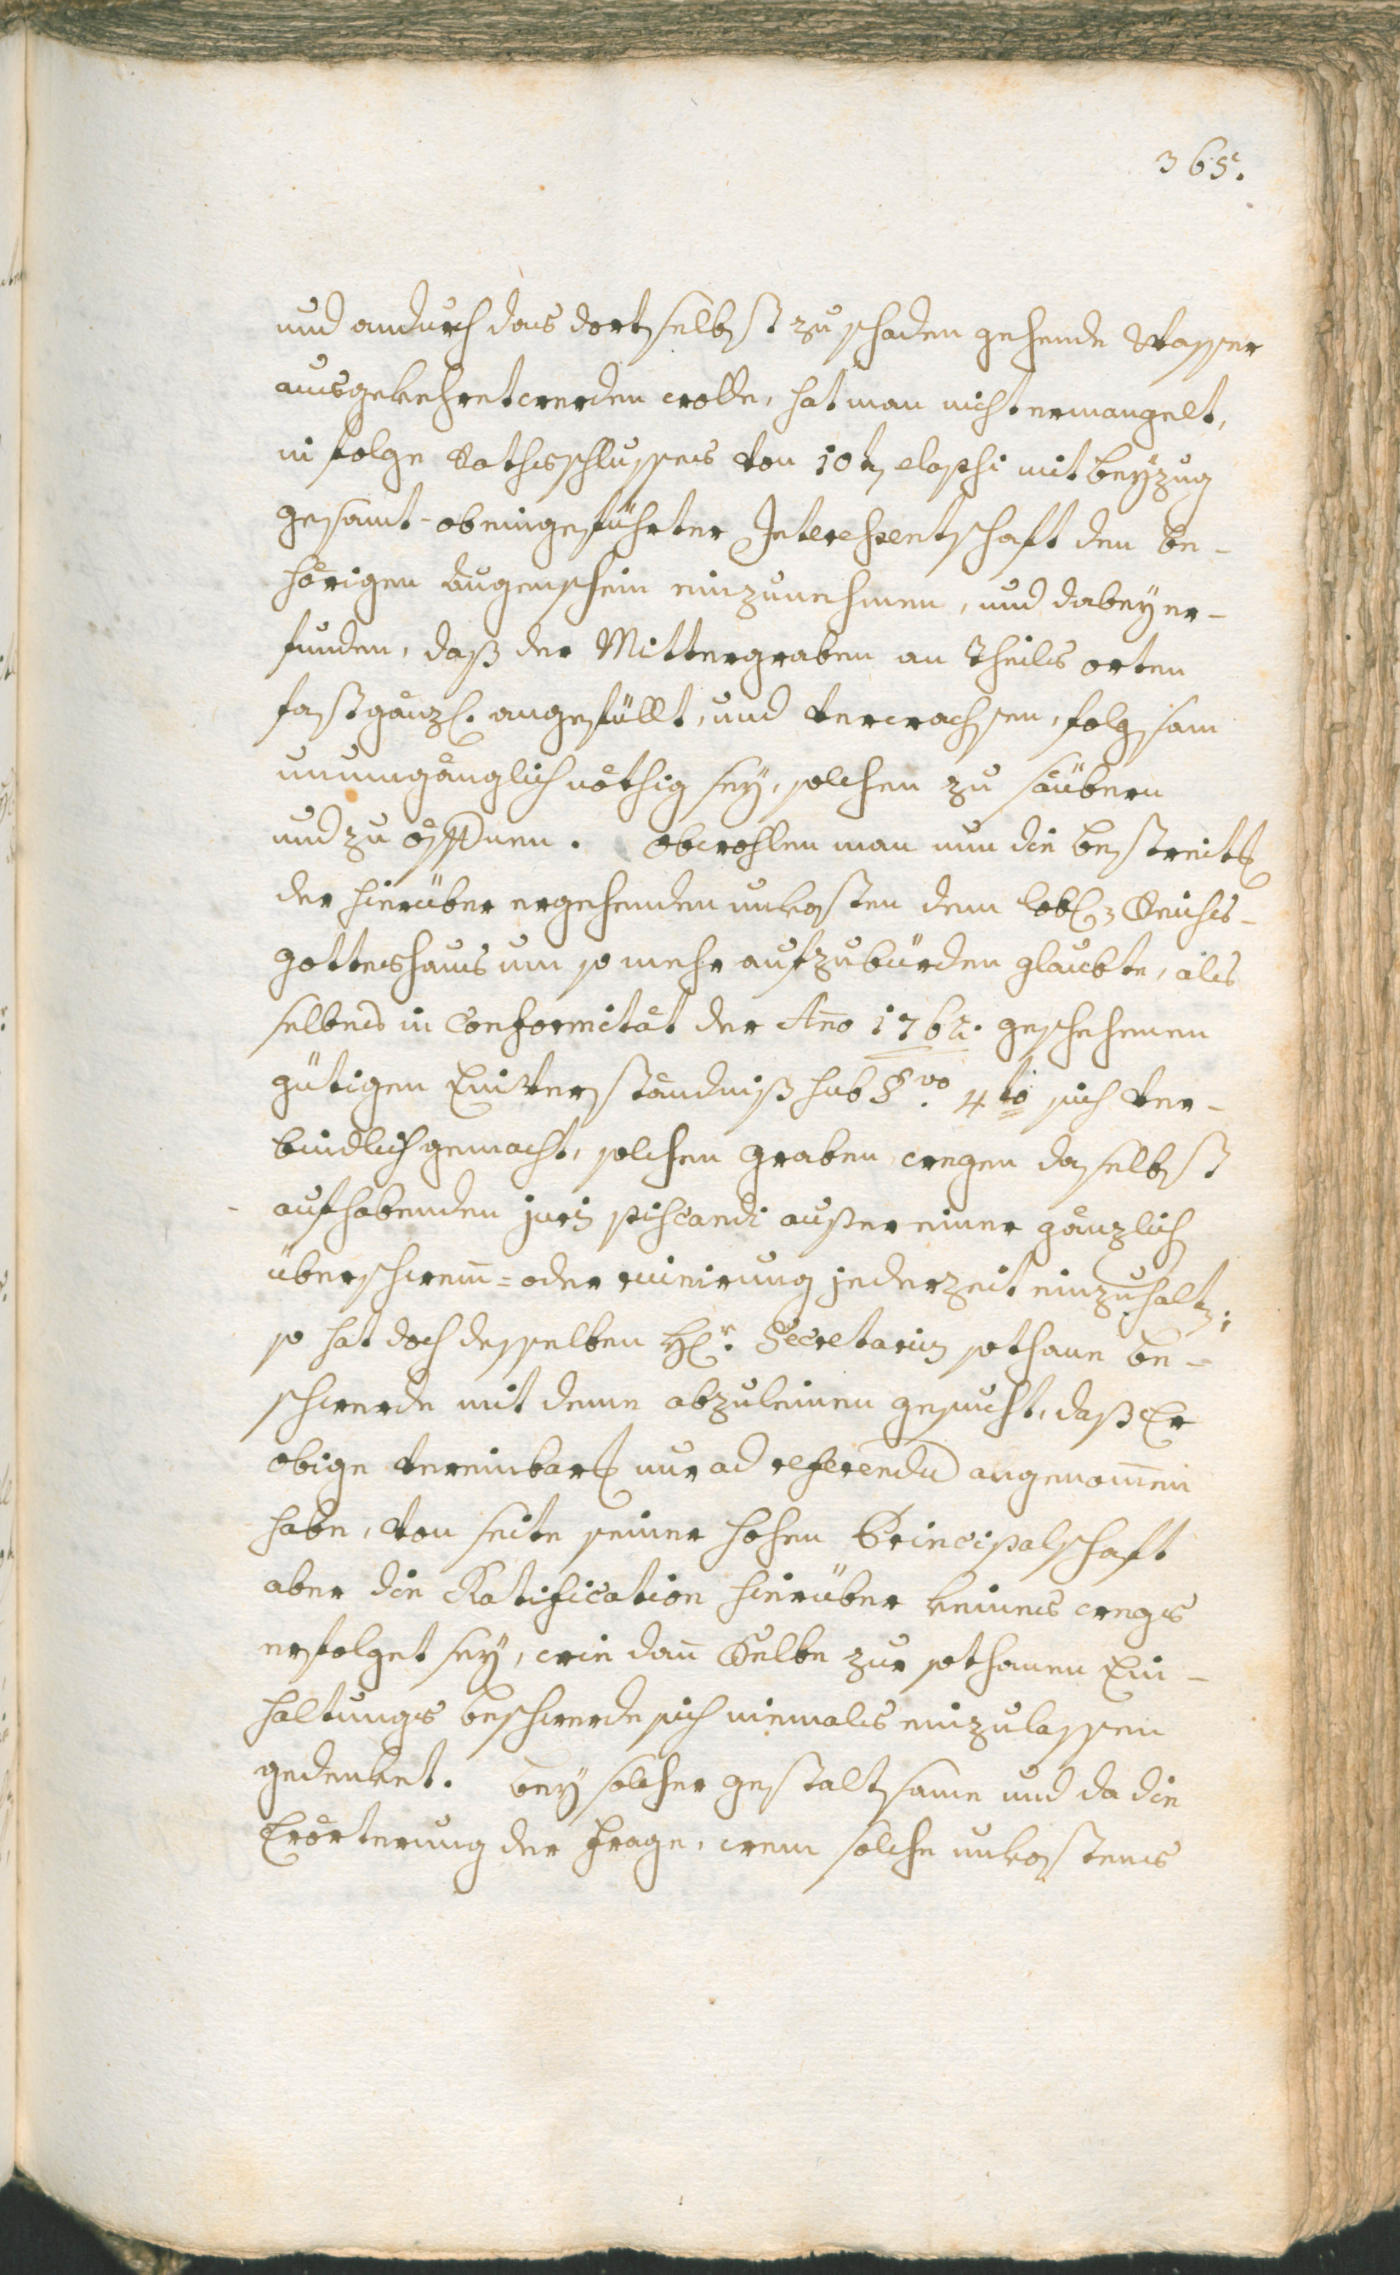 365.
und andurch das dortselbst zu schaden gehende Wasser
ausgekehret werden wolle, hat man nicht ermangelt,
in folge Rathsschlusses von 10t elapsi mit beyzug
gesamt-obeingeführter Interessentschaft den be-
hörigen Augenschein einzunehmen, und dabey er-
funden, daß der Mittergraben an Theils orten
fast gänzl. angefüllt, und verwachsen, folgsam
unumgänglich nöthig sey, solchen zu säubern
und zu öffnen. obwohlen man nun die bestreit
der hierüber ergehenden unkosten dem lobl. Reichs-
gotteshaus um so mehr aufzubürden glaubte, als
selbes in Conformität der Ano 1762. geschehenen
gütigen Einverständniß sub §vo. 4to sich ver-
bindlich gemacht, solchen graben wegen daselbst
aufhabenden juris piscandi ausser einer gänzlich
überschwem= oder ruinirung jederzeit einzuhalt;
so hat doch desselben H. Secretarius sothane be-
schwerde mit deme abzuleinen gesucht, daß Er
obige vereinbar nur ad referendu angenomen
habe, von seite seiner hohen Principalschaft
aber die Ratification hierüber keines wegs
erfolget sey, wie dan Selbe zur sothanen Ein-
haltungs beschwerde sich niemals einzulassen
gedenket. bey solcher gestaltsame und da die
Erörterung der Frage, wem solche unkostens